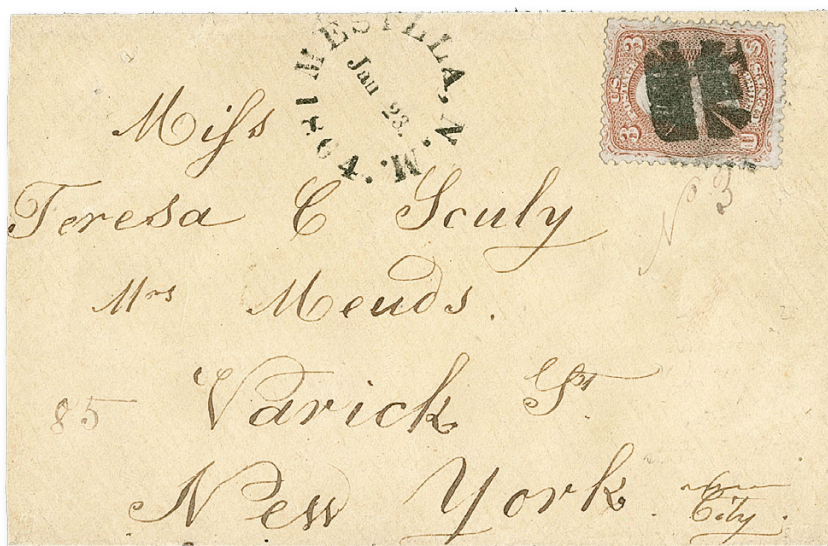 MESILLA, N.M. 1864.
Jan 23.
U.S.
3 3
No 3
Miss
Teresa C Sculy
Mrs Meuds.
85 Varick St.
New York. City.